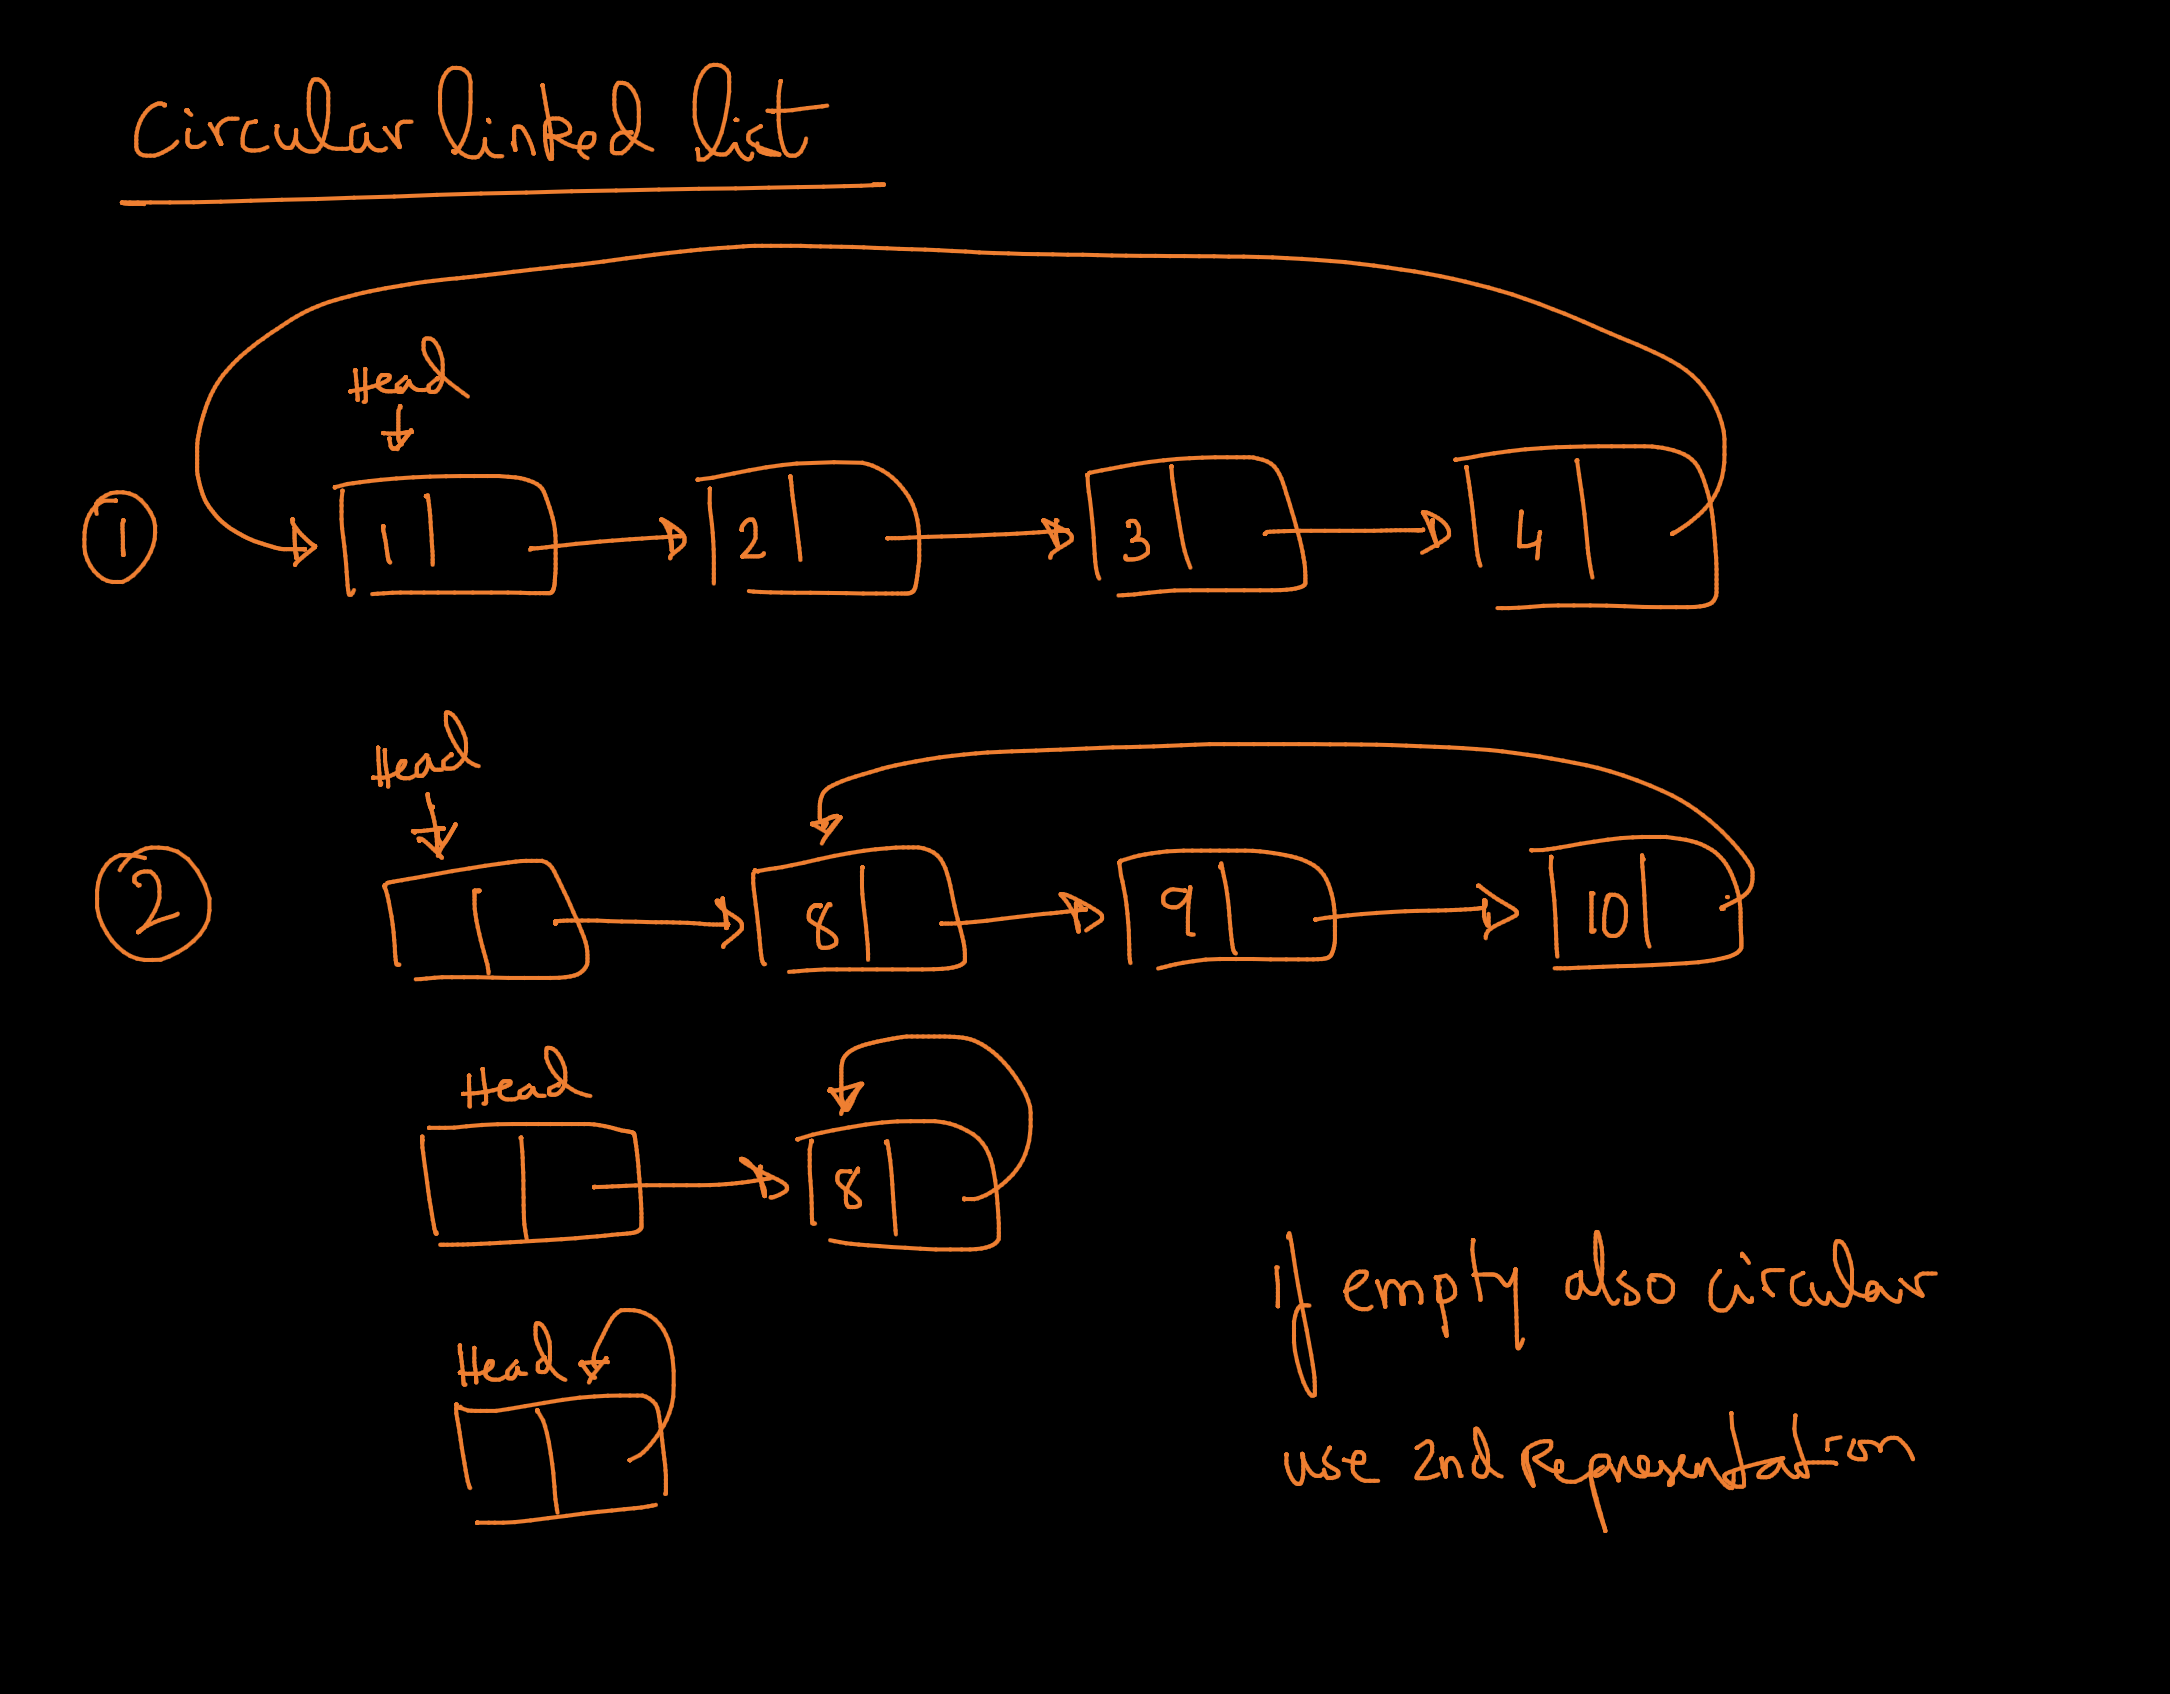 Circular linked list
Head
1 1 2 3 4
Head
2 8 9 10
Head
8
If empty also circular
Head
use 2nd Representation